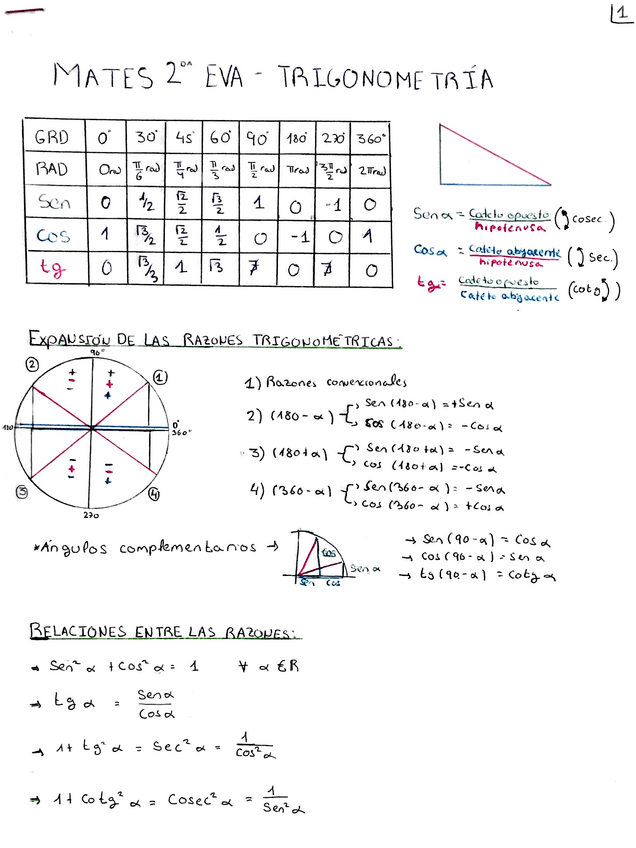 1
MATES 2ª EVA - TRIGONOMETRÍA
GRD 0° 30° 45° 60° 90° 180° 270° 360°
RAD 0rad π/6 rad π/4 rad π/3 rad π/2 rad πrad 3π/2 rad 2πrad
Sen 0 1/2 √2/2 √3/2 1 0 -1 0
Cos 1 √3/2 √2/2 1/2 0 -1 0 1
tg 0 √3/3 1 √3 ∄ 0 ∄ 0
Sen α = Cateto opuesto / hipotenusa (cosec.)
Cos α = Cateto abyacente / hipotenusa (Sec.)
tg = Cateto opuesto / Cateto abyacente (cotg)
EXPANSIÓN DE LAS RAZONES TRIGONOMÉTRICAS:
90°
2
1
+ +
- +
- +
180
0°
360°
- -
+ -
- +
3
4
270
1) Razones convencionales
2) (180-α) Sen (180-α) = +Sen α
cos (180-α) = -Cos α
3) (180+α) Sen (180+α) = -Sen α
cos (180+α) = -Cos α
4) (360-α) Sen (360-α) = -Sen α
cos (360-α) = +Cos α
*Ángulos complementarios →
cos
Sen α
Sen cos
→ Sen (90-α) = Cos α
→ Cos (90-α) = Sen α
→ tg (90-α) = Cotg α
RELACIONES ENTRE LAS RAZONES:
→ Sen² α + Cos² α = 1 ∀ α ∈ R
→ tg α = Sen α / Cos α
→ 1 + tg² α = Sec² α = 1 / Cos² α
→ 1 + Cotg² α = Cosec² α = 1 / Sen² α